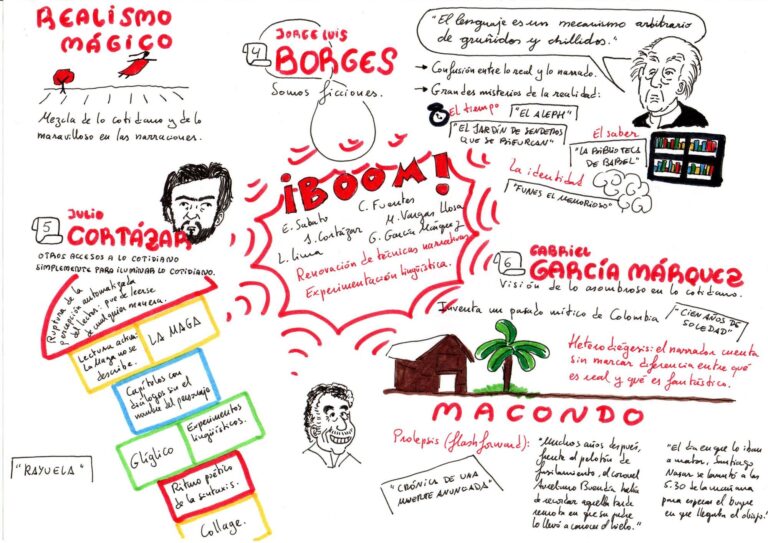 REALISMO
MÁGICO
Mezcla de lo cotidiano y de lo
maravilloso en las narraciones.
4
JORGE LUIS
BORGES
Somos ficciones.
"El lenguaje es un mecanismo arbitrario
de gruñidos y chillidos."
→ Confusión entre lo real y lo narrado.
→ Grandes misterios de la realidad:
El tiempo
"EL ALEPH"
"EL JARDÍN DE SENDEROS
QUE SE BIFURCAN"
El saber
"LA BIBLIOTECA
DE BABEL"
La identidad
"FUNES EL MEMORIOSO"
¡BOOM!
E. Sábato
C. Fuentes
J. Cortázar
M. Vargas Llosa
L. Lima
G. García Márquez
Renovación de técnicas narrativas
Experimentación lingüística.
5
JULIO
CORTÁZAR
OTROS ACCESOS A LO COTIDIANO
SIMPLEMENTE PARA ILUMINAR LO COTIDIANO.
Ruptura de la
percepción automatizada
del lector: puede leerse
de cualquier manera.
Lectura activa:
La Maga no se
describe.
LA MAGA
Capítulos con
diálogos sin el
nombre del personaje
Gíglico
Experimentos
lingüísticos.
Ritmo poético
de la sintaxis.
Collage.
"RAYUELA"
6
GABRIEL
GARCÍA MÁRQUEZ
Visión de lo asombroso en lo cotidiano.
Inventa un pasado mítico de Colombia
"CIEN AÑOS DE
SOLEDAD"
Heterodiégesis: el narrador cuenta
sin marcar diferencia entre qué
es real y qué es fantástico.
MACONDO
Prolepsis (flashforward):
"CRÓNICA DE UNA
MUERTE ANUNCIADA"
"Muchos años después,
frente al pelotón de
fusilamiento, el coronel
Aureliano Buendía había
de recordar aquella tarde
remota en que su padre
lo llevó a conocer el hielo."
"El día en que lo iban
a matar, Santiago
Nasar se levantó a las
5.30 de la mañana
para esperar el buque
en que llegaba el obispo."